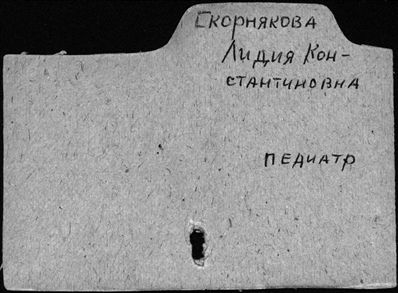 Скорнякова
Лидия Кон-
стантиновна
педиатр